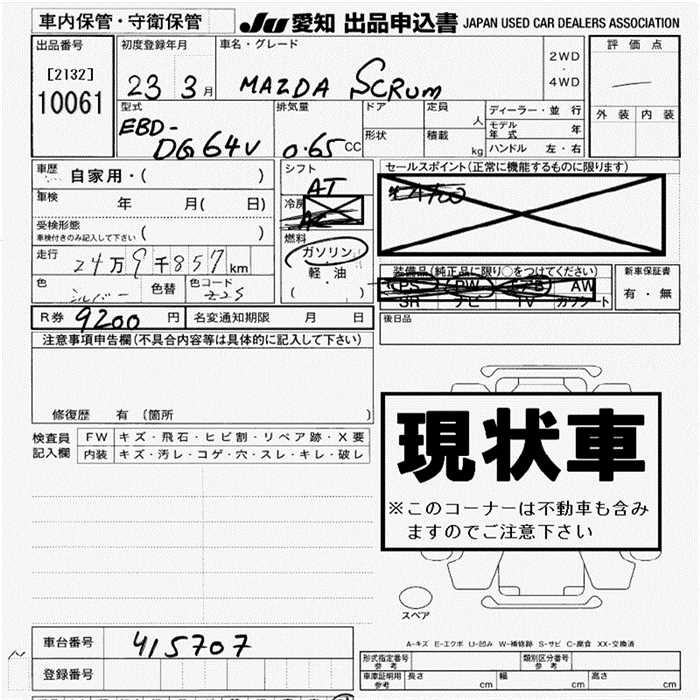 車内保管・守衛保管
JU 愛知 出品申込書 JAPAN USED CAR DEALERS ASSOCIATION
出品番号
[2132]
10061
初度登録年月
23 3月
車名・グレード
MAZDA SCRUM
2WD
・
4WD
評価点
外装 内装
型式
EBD-
DG64V
排気量
0.65CC
ドア
形状
定員 人
積載 kg
ディーラー・並行
モデル
年式 年
ハンドル 左・右
車歴
自家用・( )
車検 年 月( 日)
受検形態
車検付きのみ記入して下さい ( )
走行 24万9千857km
色 シルバー 色替 色コード Z2S
シフト
AT
冷房
AC
燃料
ガソリン
軽・油
( )
セールスポイント(正常に機能するものに限ります)
装備品(純正品に限り○をつけてください)
PS PW エアB AW
SR ナビ TV カワシート
新車保証書
有・無
R券 9200円 名変通知期限 月 日
後日品
注意事項申告欄(不具合内容等は具体的に記入して下さい)
修復歴 有〔箇所 〕
検査員
記入欄
FW キズ・飛石・ヒビ割・リペア跡・X要
内装 キズ・汚レ・コゲ・穴・スレ・キレ・破レ
現状車
※このコーナーは不動車も含み
ますのでご注意下さい
スペア
A-キズ E-エクボ U-凹み W-補修跡 S-サビ C-腐食 XX-交換済
車台番号 415707
登録番号
形式指定番号
参考
類別区分番号
参考
車庫証明用
参考
長さ cm 幅 cm 高さ cm